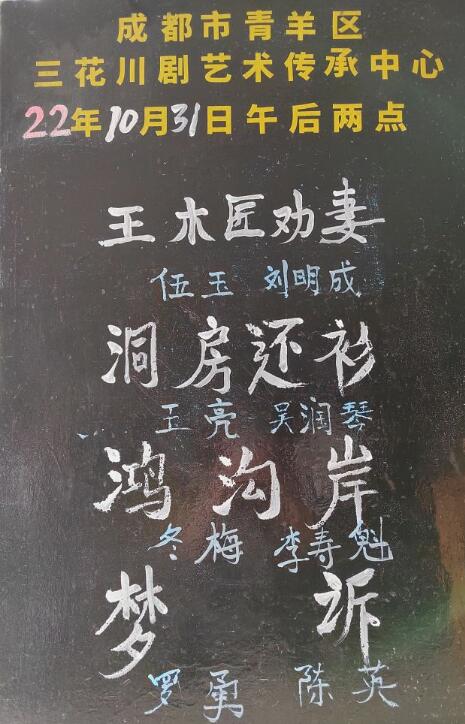 成都市青羊区
三花川剧艺术传承中心
22年10月31日午后两点
王木匠劝妻
伍玉 刘明成
洞房还衫
王亮 吴润琴
鸿沟岸
冬梅 李寿魁
梦诉
罗勇 陈英